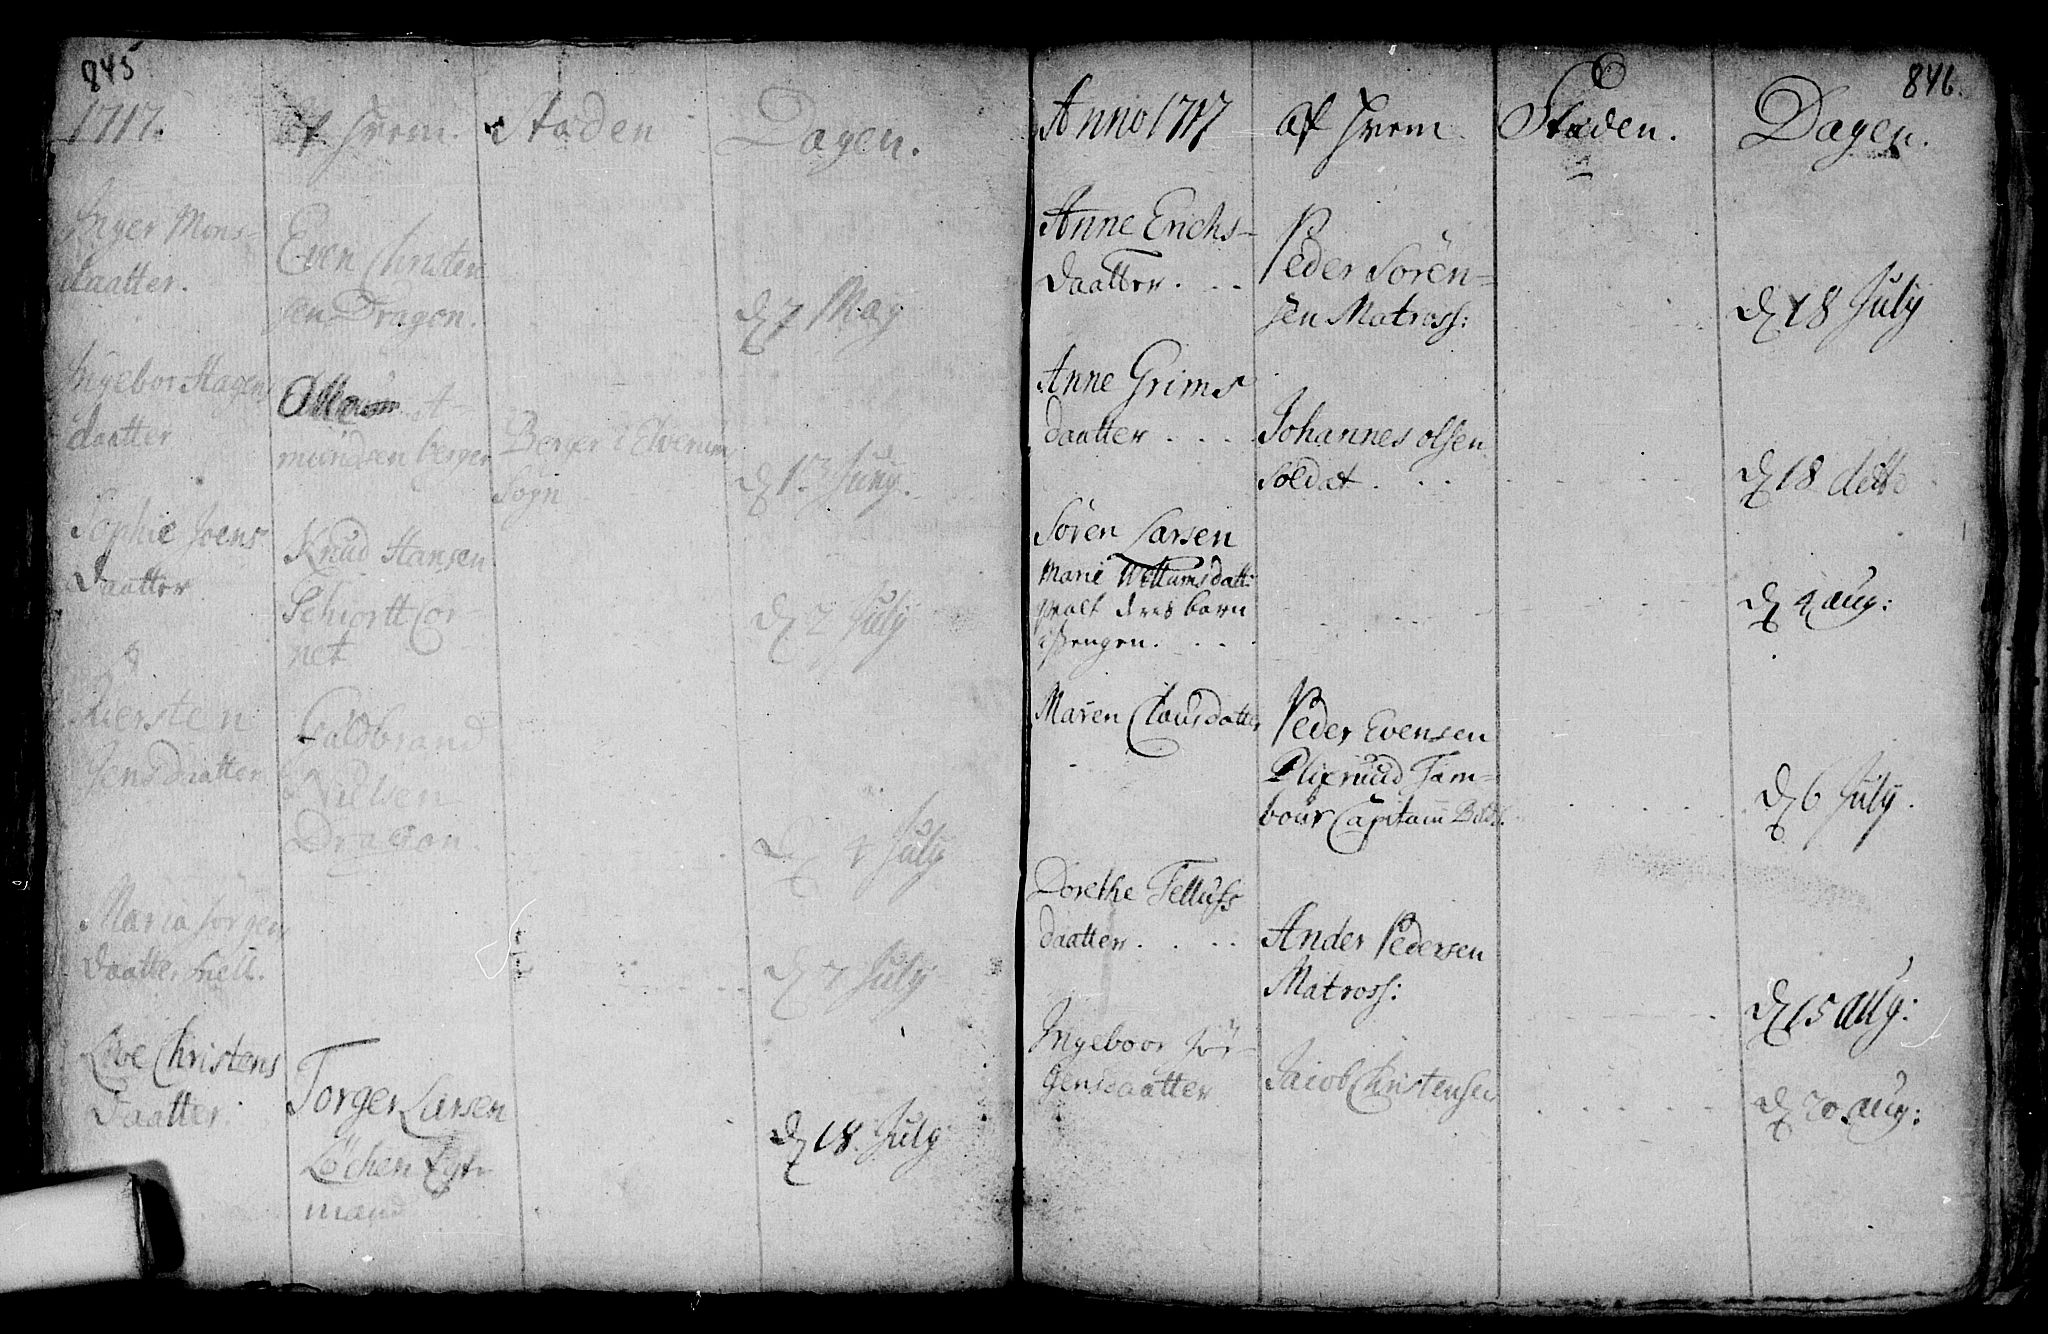 845
1717. Af Hvem. Staden Dagen.
Inger Mons-
daatter.
Even Christen
sen Dragon.
d 7 May
Ingebor Hagens
daatter
Amundsen berger
Berger i Elverum
Sogn
d 13 Juny.
Sophie Joens
Daatter
Knud Hansen
Schiort Cor-
net
d 2 July
Kiersten
Jens Daatter
Guldbrand
Nielsen
Dragon.
d 4 July
Maria Jørgen
Daatter
d 7 July
Live Christens
Daatter.
Torger Larsen
Løchen
mand
d 18 July
846.
Anno 1717 af Hvem Staden. Dagen.
Anne Erichs-
Daatter.
Peder Søren-
sen Matross:
d 18 July
Anne Grims
daatter
Johannes olsen
Soldat.
d 18 detto
Søren Larsen
Marie Willumsdatt:
qvalt deris barn
i Sengen.
d 4 aug:
Maren Clausdatter
Peder Evensen
Tam-
bour Capitain
d 6 July.
Dorethe Tellufs
daatter.
Ander Pedersen
Matross:
d 15 aug:
Ingeboor Jør-
gensdaatter
Jacob Christensen
d 20 aug: